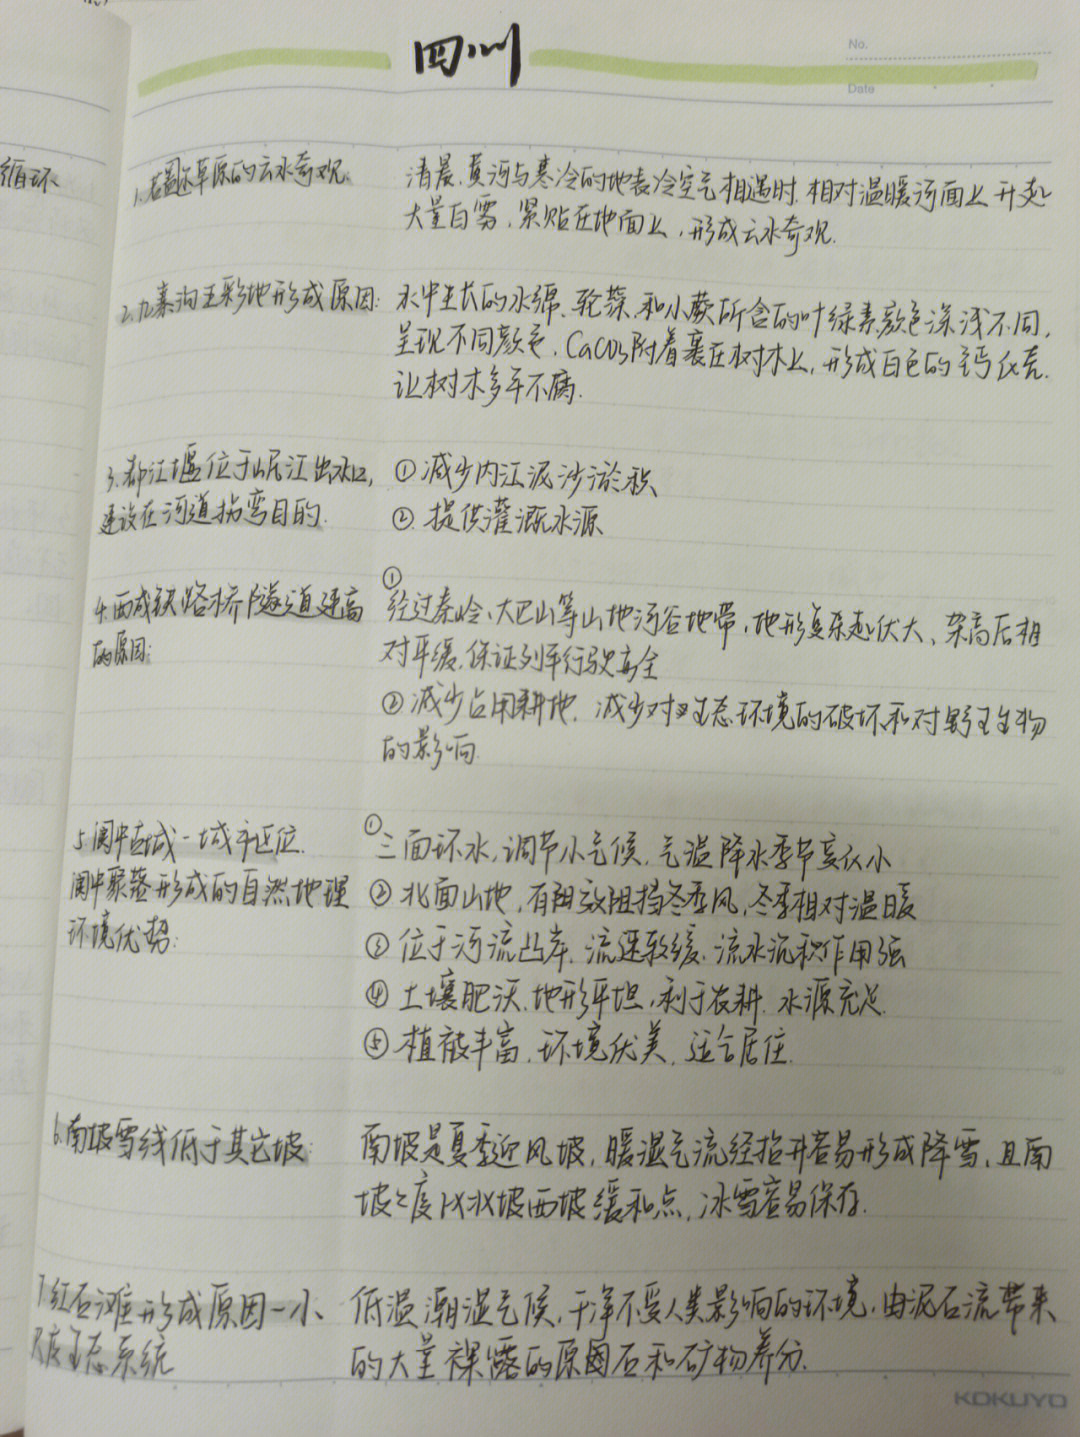 四川
No.
Date
循环
1.若尔盖草原的云水奇观:
清晨,黄河与寒冷的地表冷空气相遇时,相对温暖河面上升起
大量白雾,紧贴在地面上,形成云水奇观.
2.九寨沟五彩池形成原因:
水中生长的水绵、轮藻、和小蕨所含的叶绿素颜色深浅不同,
呈现不同颜色,CaCO3附着裹在树木上,形成白色的钙化壳,
让树木多年不腐.
3.都江堰位于岷江出水口,
建设在河道拐弯目的.
①减少内江泥沙淤积
②提供灌溉水源
4.西成铁路桥隧道建高
的原因:
①
经过秦岭、大巴山等山地河谷地带,地形复杂起伏大、架高后相
对平缓,保证列车行驶安全
②减少占用耕地,减少对生态环境的破坏和对野生生物
的影响.
5.阆中古城-城市区位.
阆中聚落形成的自然地理
环境优势:
①三面环水,调节小气候,气温降水季节变化小
②北面山地,有效阻挡冬季风,冬季相对温暖
③位于河流凸岸,流速较缓,流水沉积作用强
④土壤肥沃,地形平坦,利于农耕,水源充足.
⑤植被丰富,环境优美,适合居住.
6.南坡雪线低于其它坡:
南坡是夏季迎风坡,暖湿气流经抬升容易形成降雪,且南
坡坡度比北坡西坡缓和点,冰雪容易保存.
7.红石滩形成原因-小
尺度生态系统
低温潮湿气候,干净不受人类影响的环境,由泥石流带来
的大量裸露的原石和矿物养分.
KOKUYO